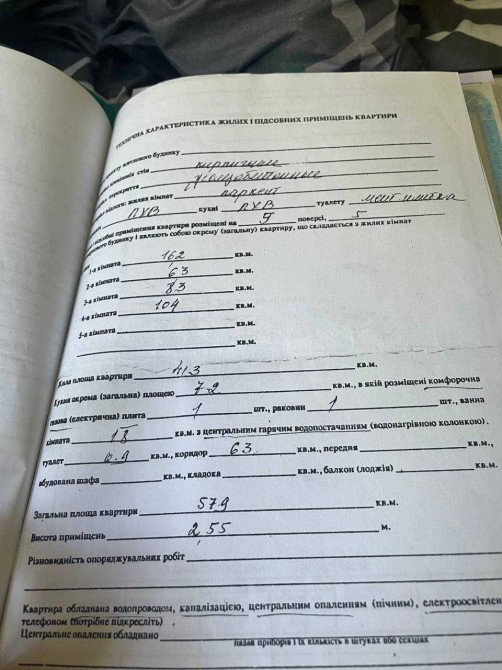 ТЕХНІЧНА ХАРАКТЕРИСТИКА ЖИЛИХ І ПІДСОБНИХ ПРИМІЩЕНЬ КВАРТИРИ
житлового будинку
стін кирпичные
перекриття железобетонные
підлоги: жилих кімнат паркет
ПХВ кухні ПХВ туалету мет. плитка
підсобні приміщення квартири розміщені на 5 поверсі, 5
будинку і являють собою окрему (загальну) квартиру, що складається з жилих кімнат
1-а кімната 16,2 кв.м.
2-а кімната 6,3 кв.м.
3-а кімната 8,3 кв.м.
4-а кімната 10,4 кв.м.
5-а кімната кв.м.
кв.м.
площа квартири 41,3 кв.м.
Кухня окрема (загальна) площею 7,2 кв.м., в якій розміщені комфорочна
газова (електрична) плита 1 шт., раковин 1 шт., ванна
кімната 1,8 кв.м. з центральним гарячим водопостачанням (водонагрівною колонкою).
туалет 0.9 кв.м., коридор 6,3 кв.м., передня кв.м.,
вбудована шафа кв.м., кладока кв.м., балкон (лоджія) кв.м.
Загальна площа квартири 57,9 кв.м.
Висота приміщень 2,55 м.
Різновидність опоряджувальних робіт
Квартира обладнана водопроводом, каналізацією, центральним опаленням (пічним), електроосвітлен
телефоном (потрібне підкресліть)
Центральне опалення обладнано
назва приборів і їх кількість в штуках або секціях